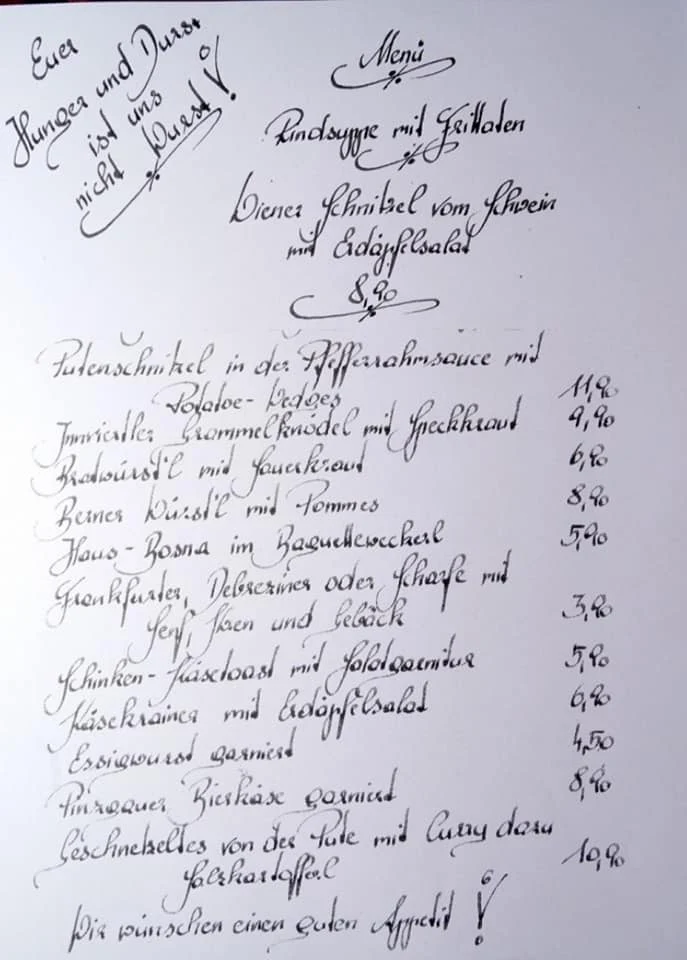 Euer
Hunger und Durst
ist uns
nicht Wurst!
Menü
Rindsuppe mit Frittaten
Wiener Schnitzel vom Schwein
mit Erdäpfelsalat
8,90
Putenschnitzel in der Pfefferrahmsauce mit
Potatoe-Wedges 11,90
Innviertler Grammelknödel mit Speckkraut 9,90
Bratwürst'l mit Sauerkraut 6,90
Berner Würst'l mit Pommes 8,90
Haus-Bosna im Baguetteweckerl 5,90
Frankfurter, Debreziner oder Scharfe mit
Senf, Kren und Gebäck 3,90
Schinken-Käsetoast mit Salatgarnitur 5,90
Käsekrainer mit Erdäpfelsalat 6,90
Essigwurst garniert 4,50
Pinzgauer Bierkäse garniert 8,90
Geschnetzeltes von der Pute mit Curry dazu
Salzkartofferl 10,90
Wir wünschen einen guten Appetit!